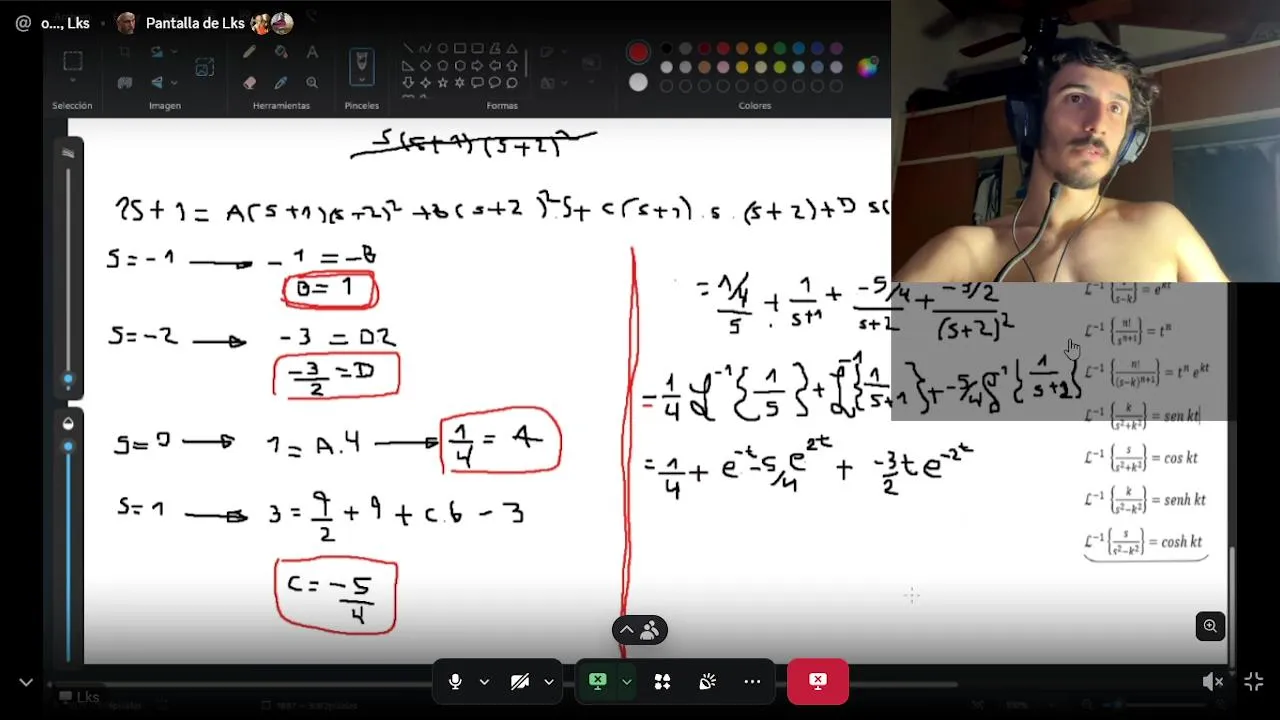 @ o..., Lks · Pantalla de Lks
Selección
Imagen
Herramientas
Pinceles
Formas
Colores
s(s+1)(s+2)²
2s+1 = A(s+1)(s+2)² + B(s+2)²s + C(s+1).s.(s+2) + D s(
s=-1 → -1 = -B
B = 1
s=-2 → -3 = D2
-3/2 = D
s=0 → 1 = A.4 → 1/4 = A
s=1 → 3 = 9/2 + 9 + C.6 - 3
C = -5/4
= 1/4/s + 1/s+1 + -5/4/s+2 + -3/2/(s+2)²
= 1/4 ℒ⁻¹{1/s} + ℒ⁻¹{1/s+1} + -5/4 ℒ⁻¹{1/s+2}
= 1/4 + e^-t - 5/4 e^2t + -3/2 t e^-2t
ℒ⁻¹{1/s-k} = e^kt
ℒ⁻¹{n!/s^n+1} = t^n
ℒ⁻¹{n!/(s-k)^n+1} = t^n e^kt
ℒ⁻¹{k/s²+k²} = sen kt
ℒ⁻¹{s/s²+k²} = cos kt
ℒ⁻¹{k/s²-k²} = senh kt
ℒ⁻¹{s/s²-k²} = cosh kt
Lks